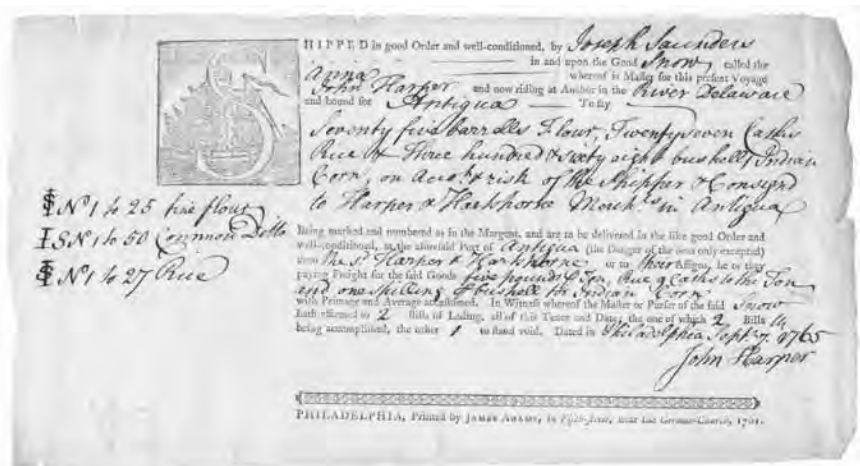 SHIPPED in good Order and well-conditioned, by Joseph Saunders
in and upon the Good Snow called the
Anna whereof is Master for this present Voyage
John Harper and now riding at Anchor in the River Delaware
and bound for Antigua To say
Seventy five barrells Flour, Twenty seven Casks
Rice & Three hundred & sixty eight bushells Indian
Corn, on Acco.t & risk of the Shipper & Consign'd
to Harper & Hartshorne Merch.ts in Antigua
$ No 1 to 25 fine flour
IS No 1 to 50 Common Ditto
$ No 1 to 27 Rice
Being marked and numbered as in the Margent, and are to be delivered in the like good Order and
well-conditioned, at the aforesaid Port of Antigua (the Danger of the Seas only excepted)
unto the s.d Harper & Hartshorne or to their Assigns, he or they
paying Freight for the said Goods five pounds Ton, Rice 4 Casks to the Ton
and one shilling bushell for Indian Corn
with Primage and Average accustomed. In Witness whereof the Master or Purser of the said Snow
hath affirmed to 2 Bills of Lading, all of this Tenor and Date; the one of which 2 Bills
being accomplished, the other 1 to stand void. Dated in Philadelphia Sept. 7. 1765
John Harper
PHILADELPHIA, Printed by JAMES ADAMS, in near the German-Church, 1761.